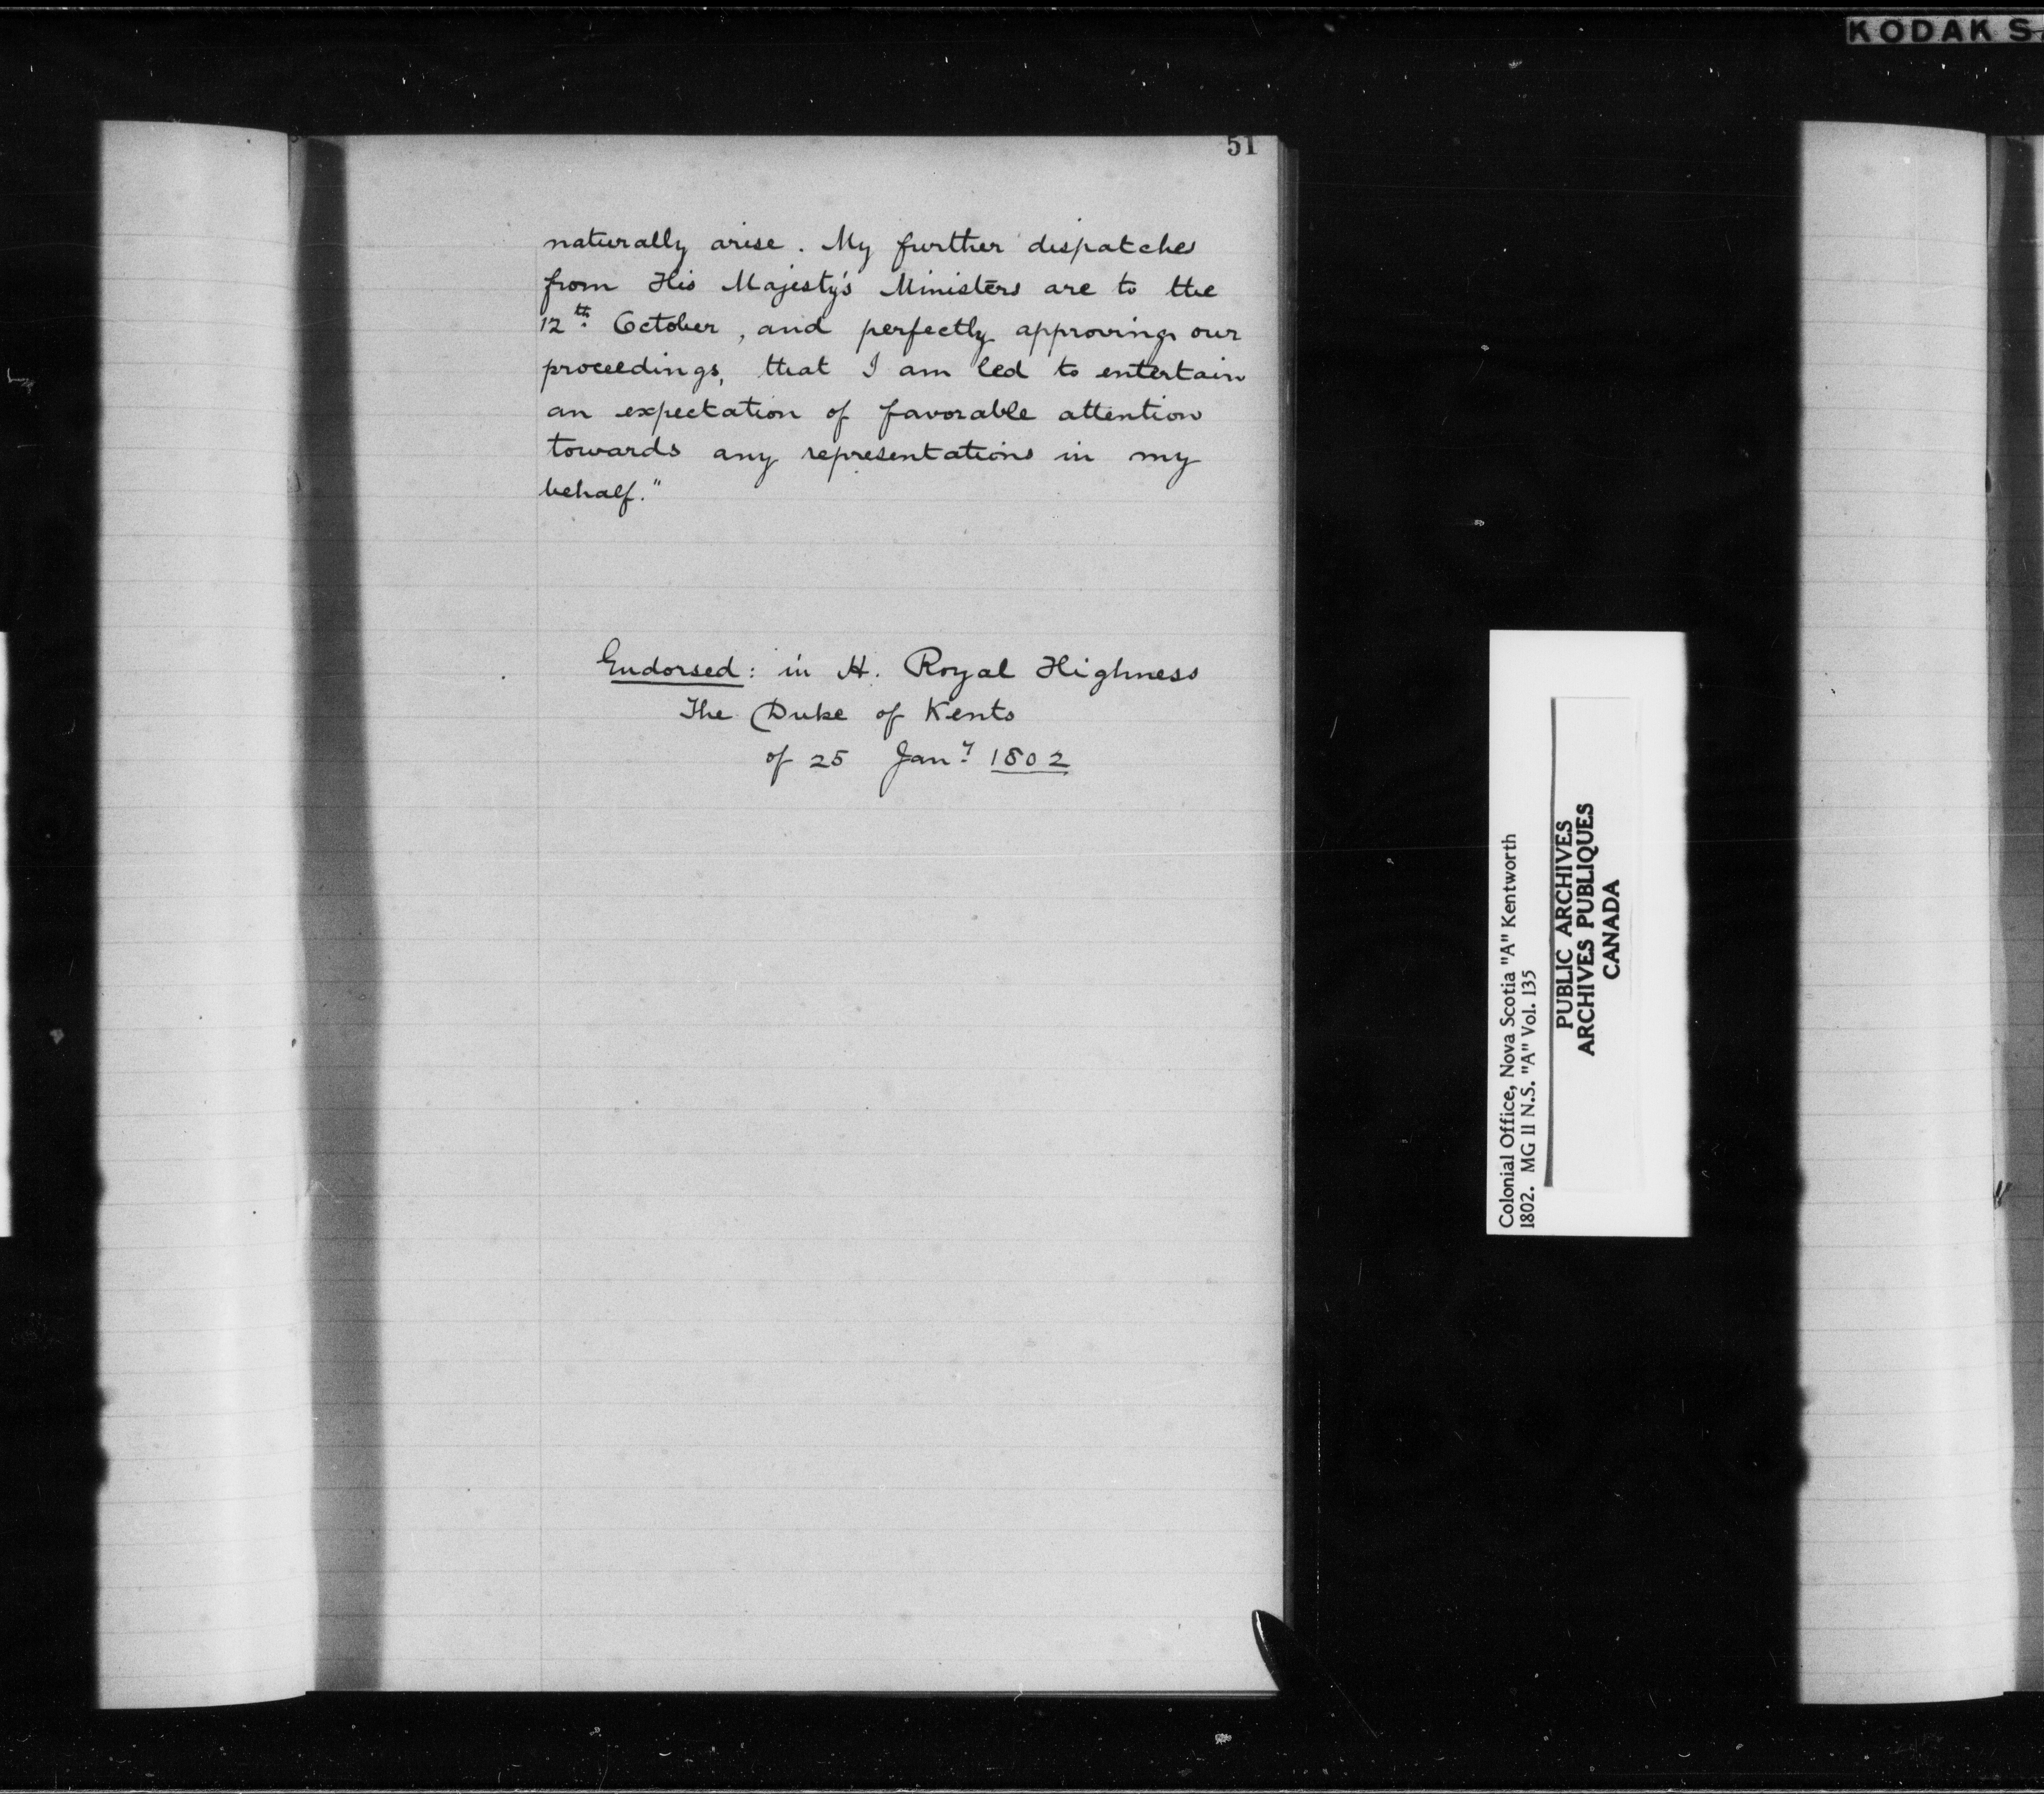 KODAK S
51
naturally arise. My further dispatches
from His Majesty's Ministers are to the
12th October, and perfectly approving our
proceedings, that I am led to entertain
an expectation of favorable attention
towards any representations in my
behalf."
Endorsed: in H. Royal Highness
The Duke of Kents
of 25 Jany 1802
Colonial Office, Nova Scotia "A" Kentworth
1802. MG 11 N.S. "A" Vol. 135
PUBLIC ARCHIVES
ARCHIVES PUBLIQUES
CANADA